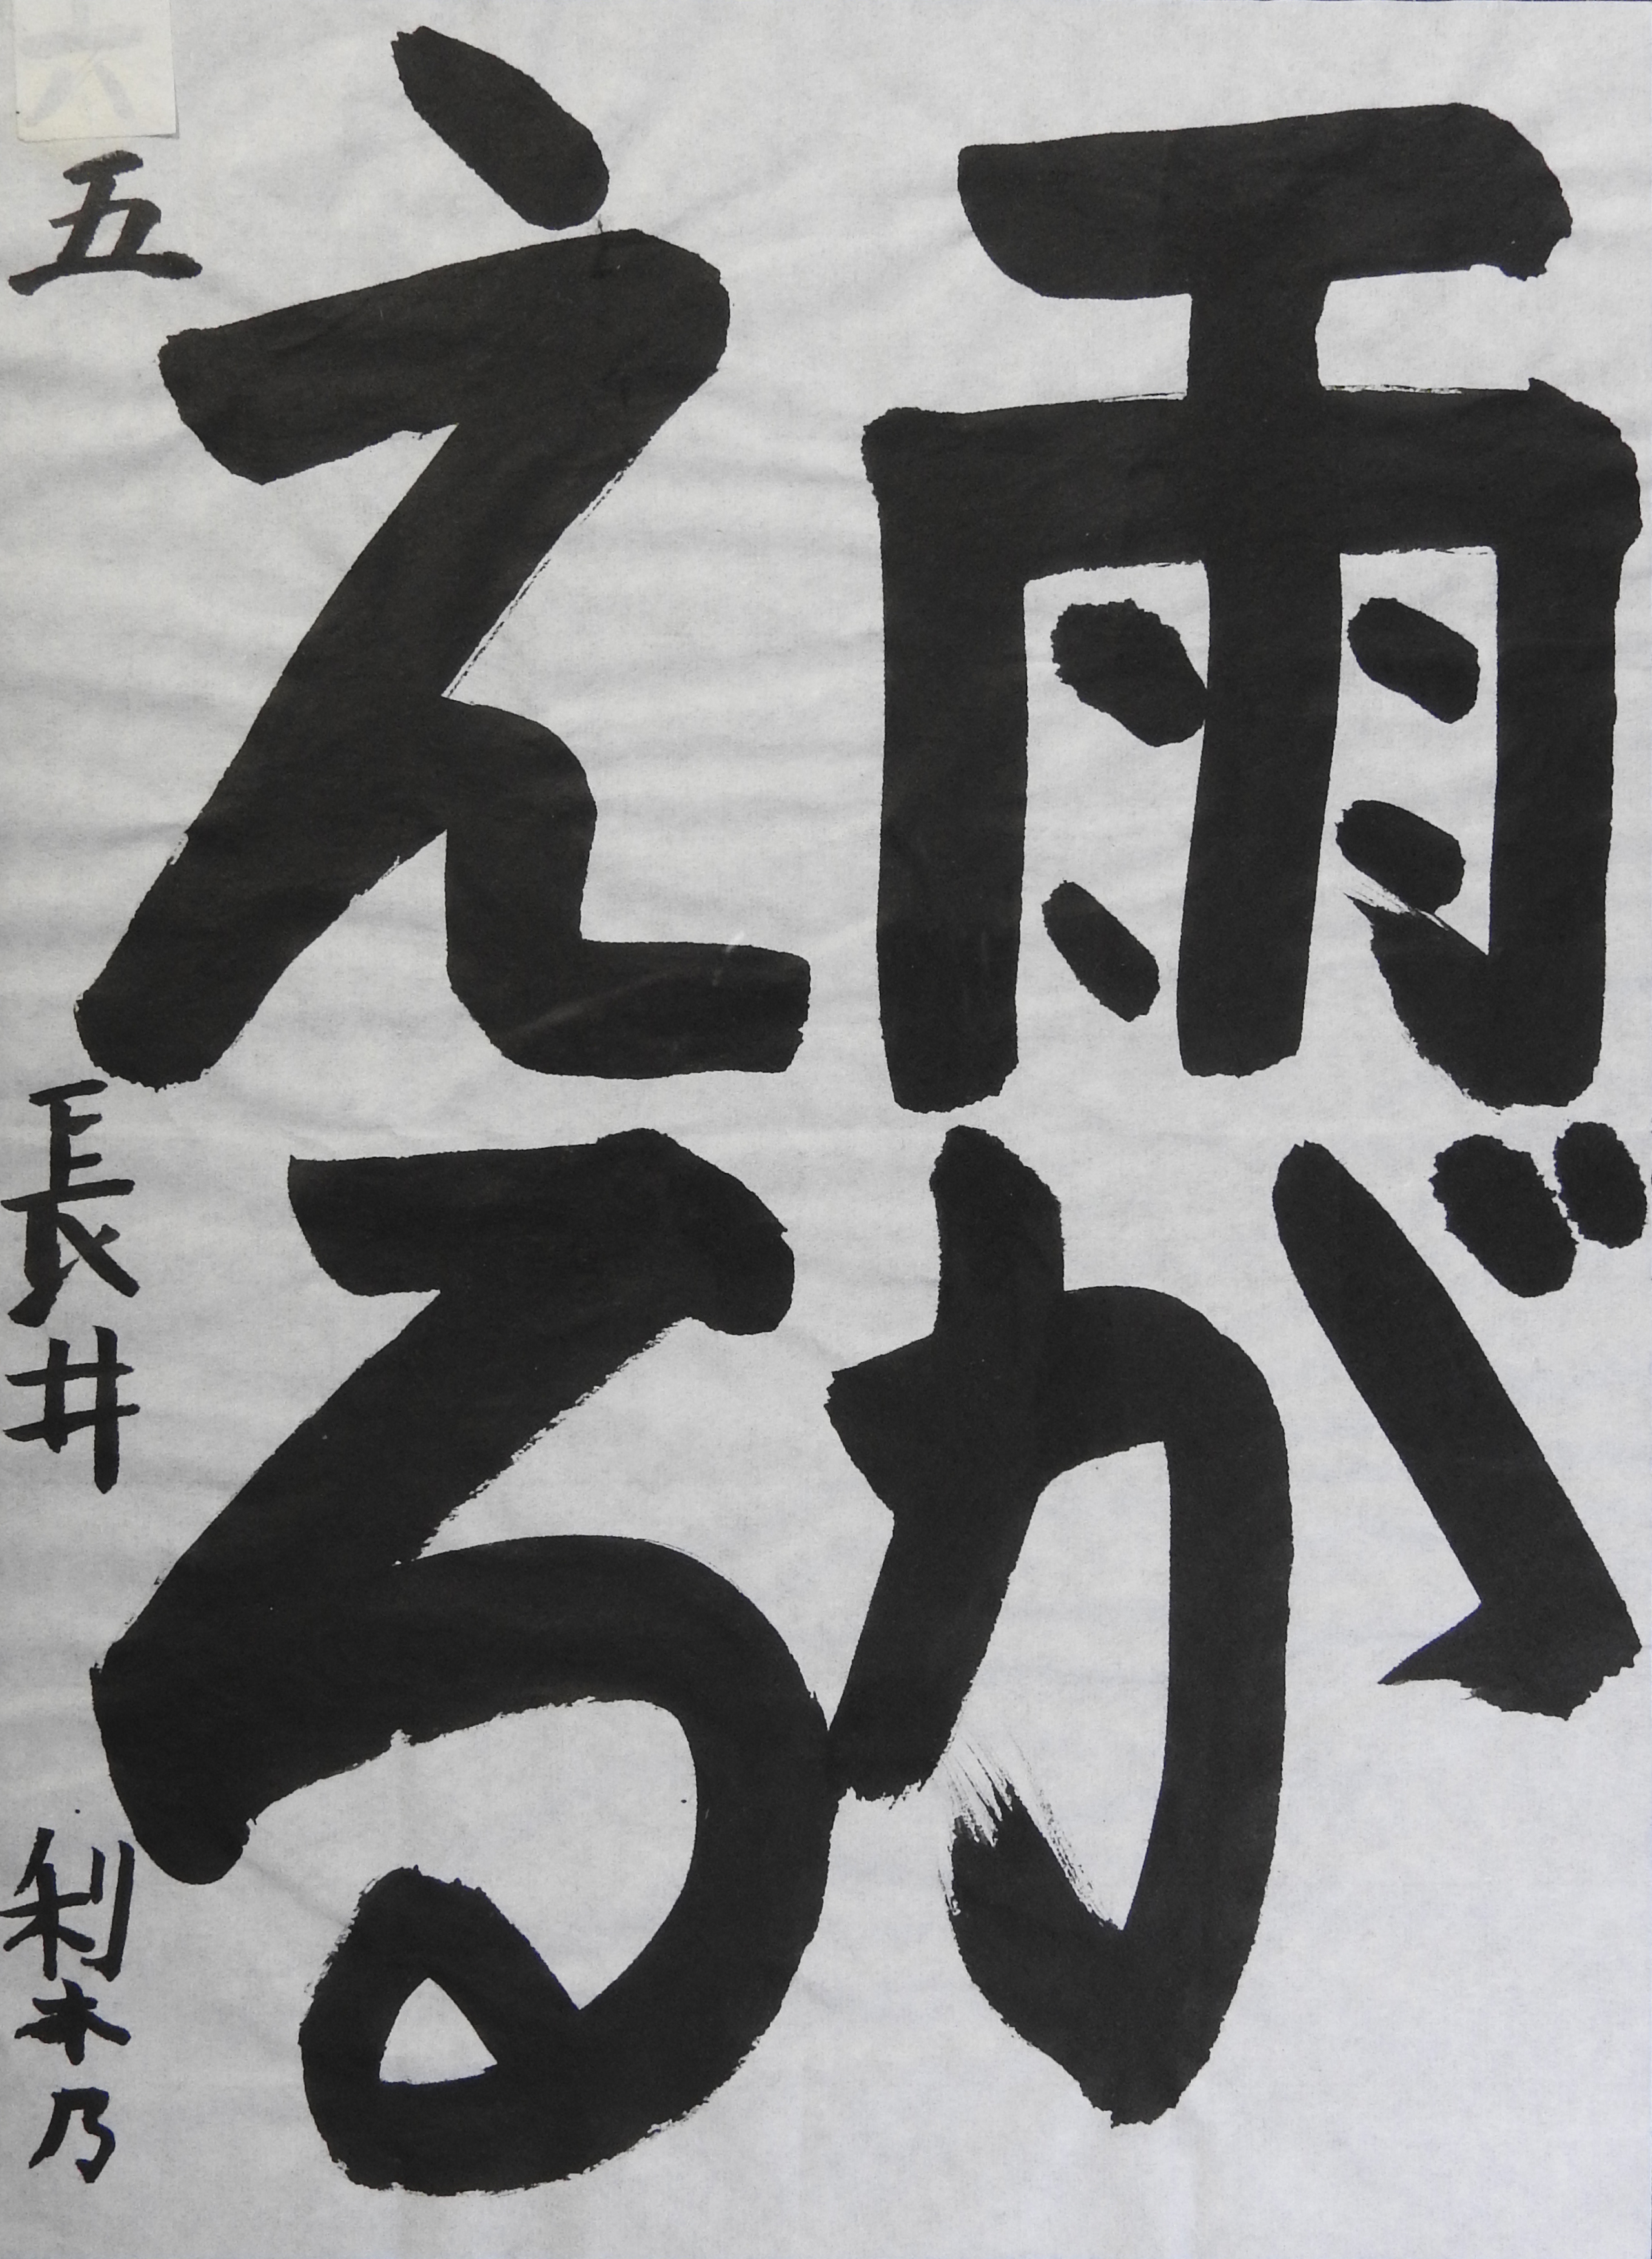 雨が
える
五 長井 梨乃